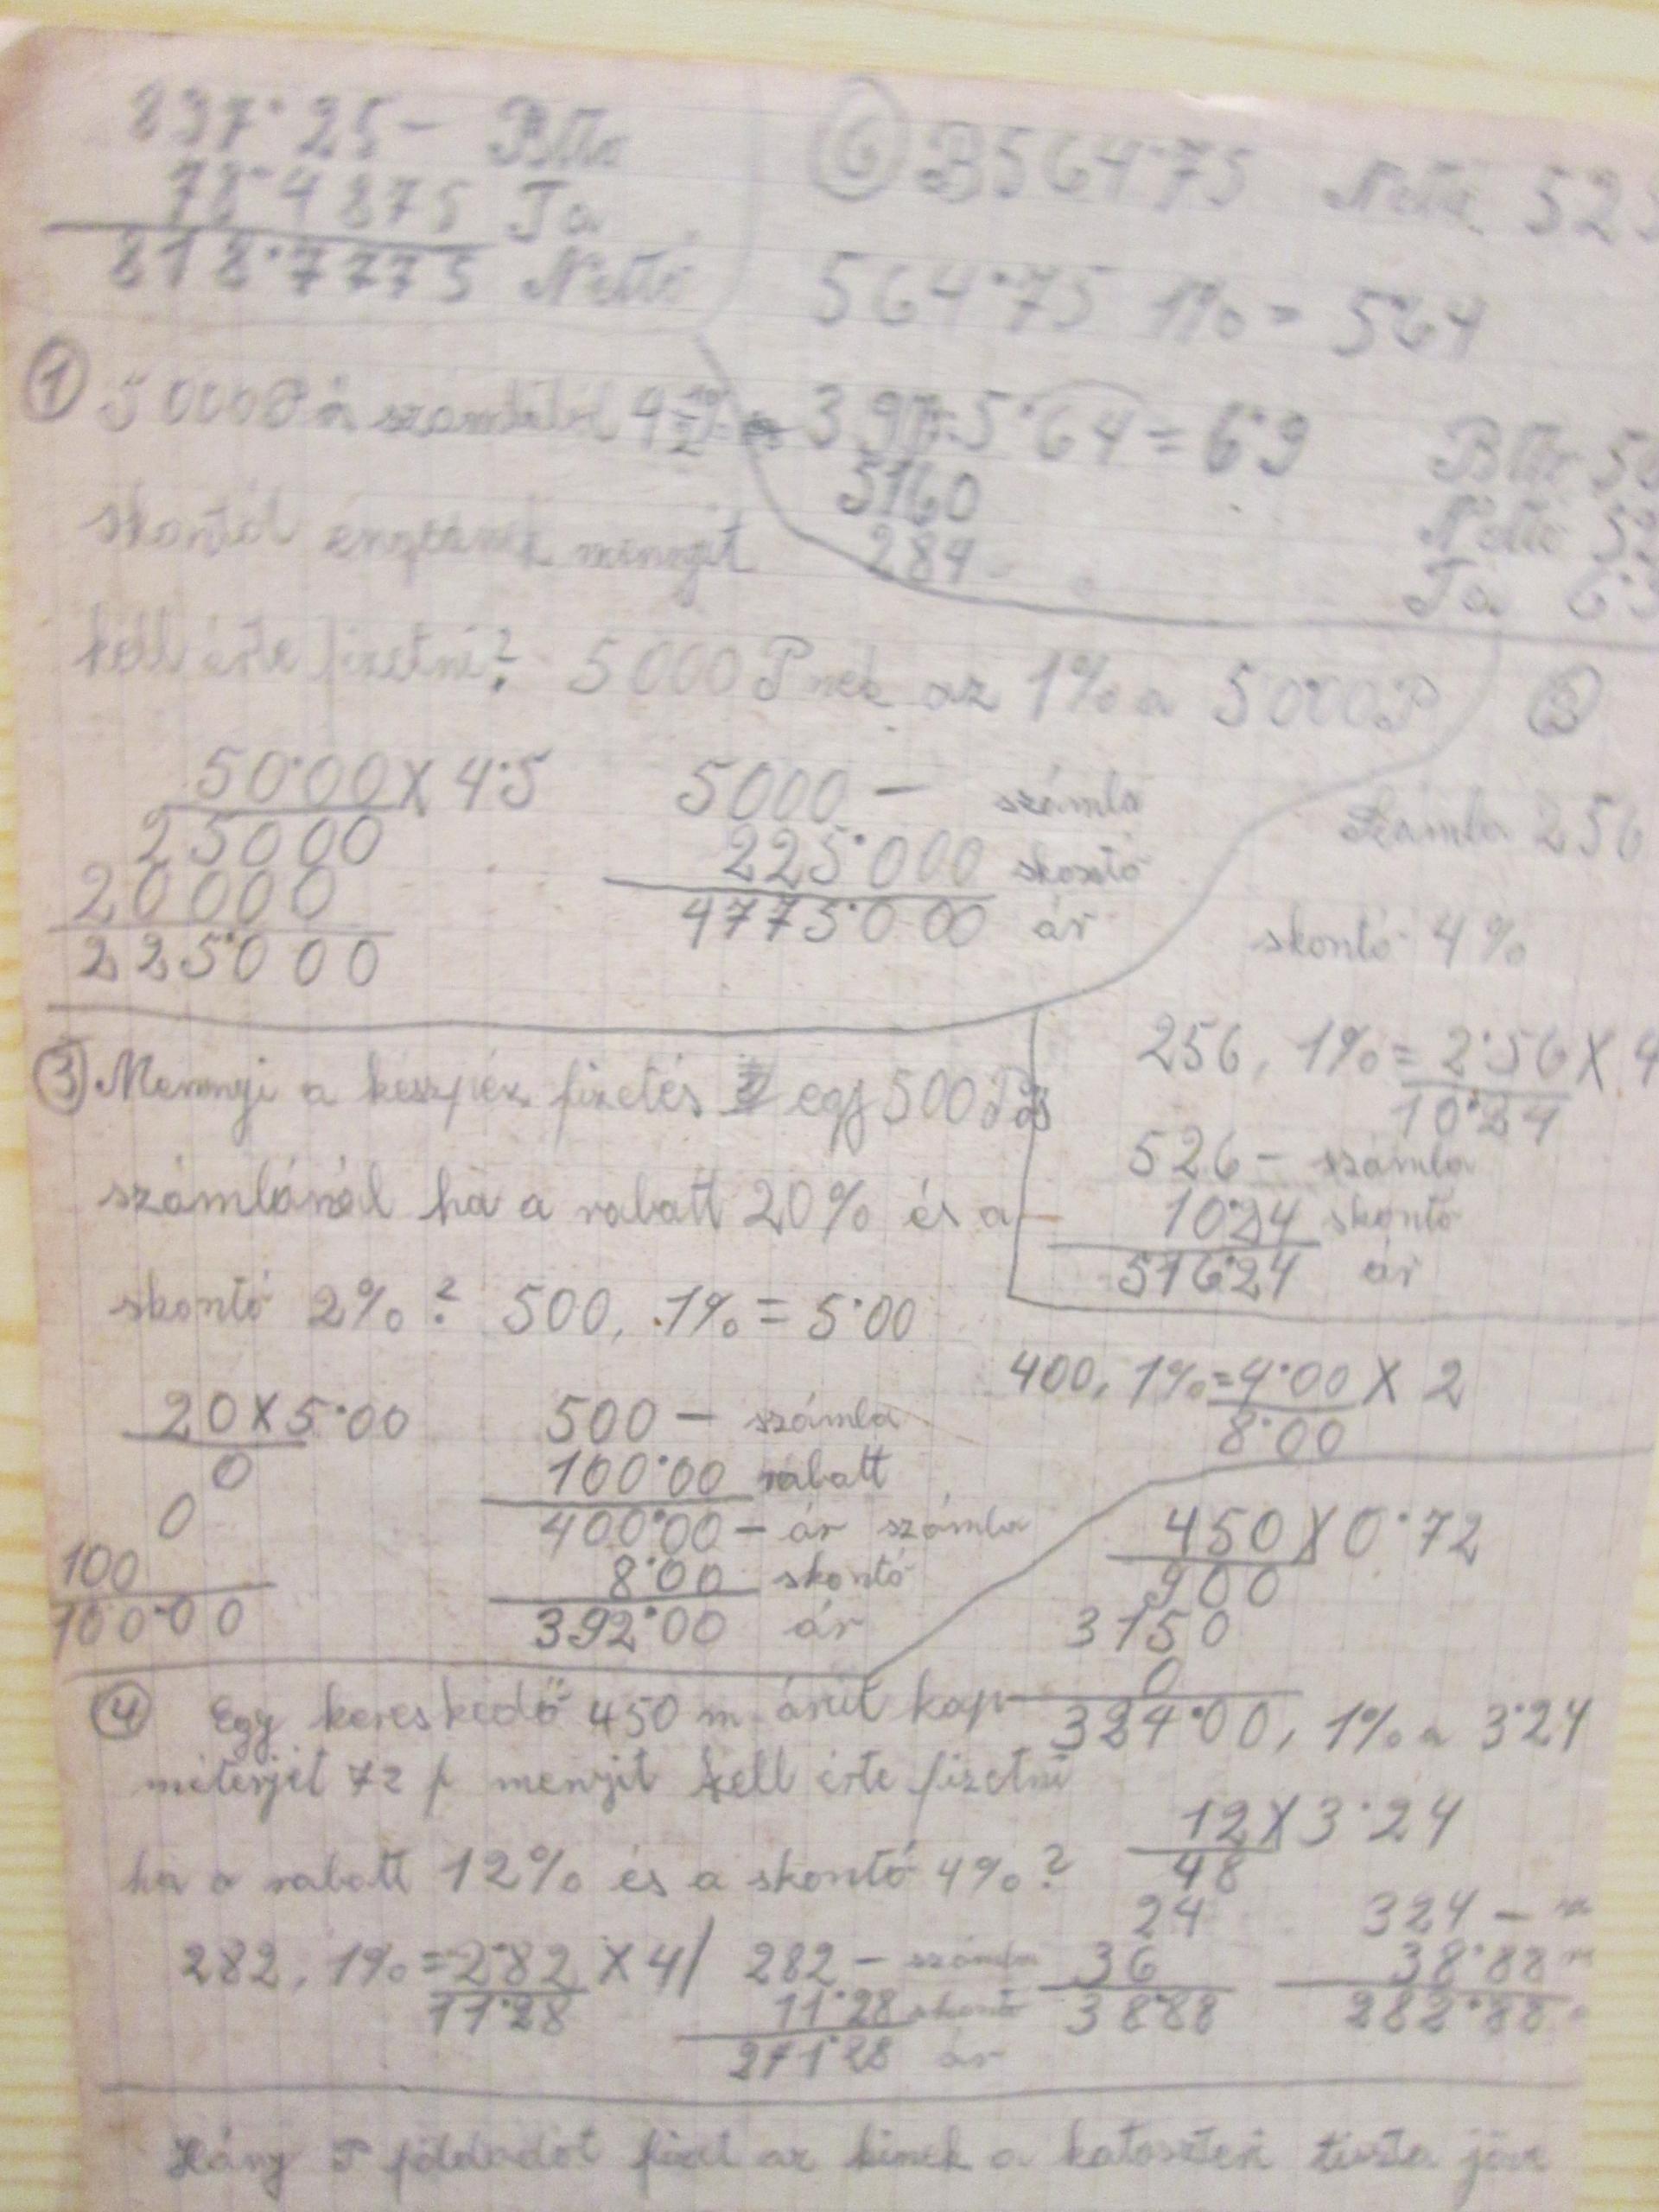 897·25 - Btto
78·4875 Ta
818·7775 Nettó
⑥ B 564·75 Nettó 52
564·75 1% = 5·64
① 5000 P a számlából 4 1/2 %
skontót
mennyit
kell érte fizetni? 5000 P nek az 1% a 50·00 P
397 : 5·64 = 6·9
5160
284
Btto 56
Netto 52
Ta 6·9
50·00 X 4·5
25000
20000
225·000
5000 - számla
225·000 skontó
4775·000 ár
⑤
Számla 256
skontó 4%
256, 1% = 2·56 X 4
10·24
526 - számla
10·24 skontó
516·24 ár
③ Mennyi a készpéz fizetés egy 500 P ás
számlánál ha a rabatt 20% és a
skontó 2%? 500, 1% = 5·00
20 X 5·00
0
0
100
100·00
500 - számla
100·00 rabatt
400·00 - ár számla
8·00 skontó
392·00 ár
400, 1% = 4·00 X 2
8·00
④ Egy kereskedő 450 m árút kap
méterjét 72 f menyit kell érte fizetni
ha a rabatt 12% és a skontó 4%?
450 X 0·72
900
3150
0
324·00, 1% a 3·24
12 X 3·24
48
24
36
38·88
324 -
38·88
282·88
282, 1% = 2·82 X 4
11·28
282 - számla
11·28 skontó
271·28 ár
Hány P földadót fizet az kinek a kataszteri tiszta jöve